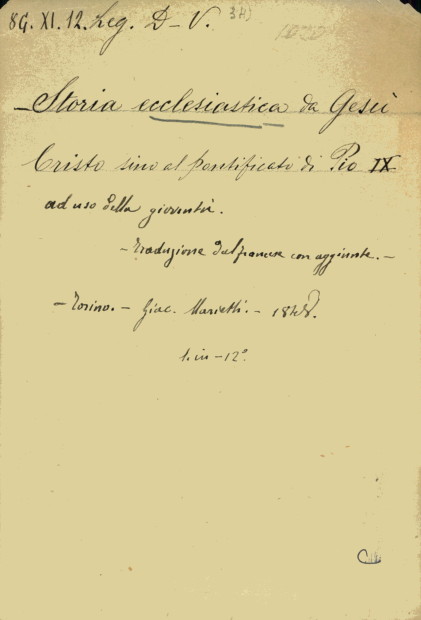 8G. XI. 12. Leg. D-V.
— Storia ecclesiastica da Gesù
Cristo sino al pontificato di Pio IX
ad uso della gioventù.
— Traduzione dal francese con aggiunte. —
— Torino. — Giac. Marietti. —
1. in-12°